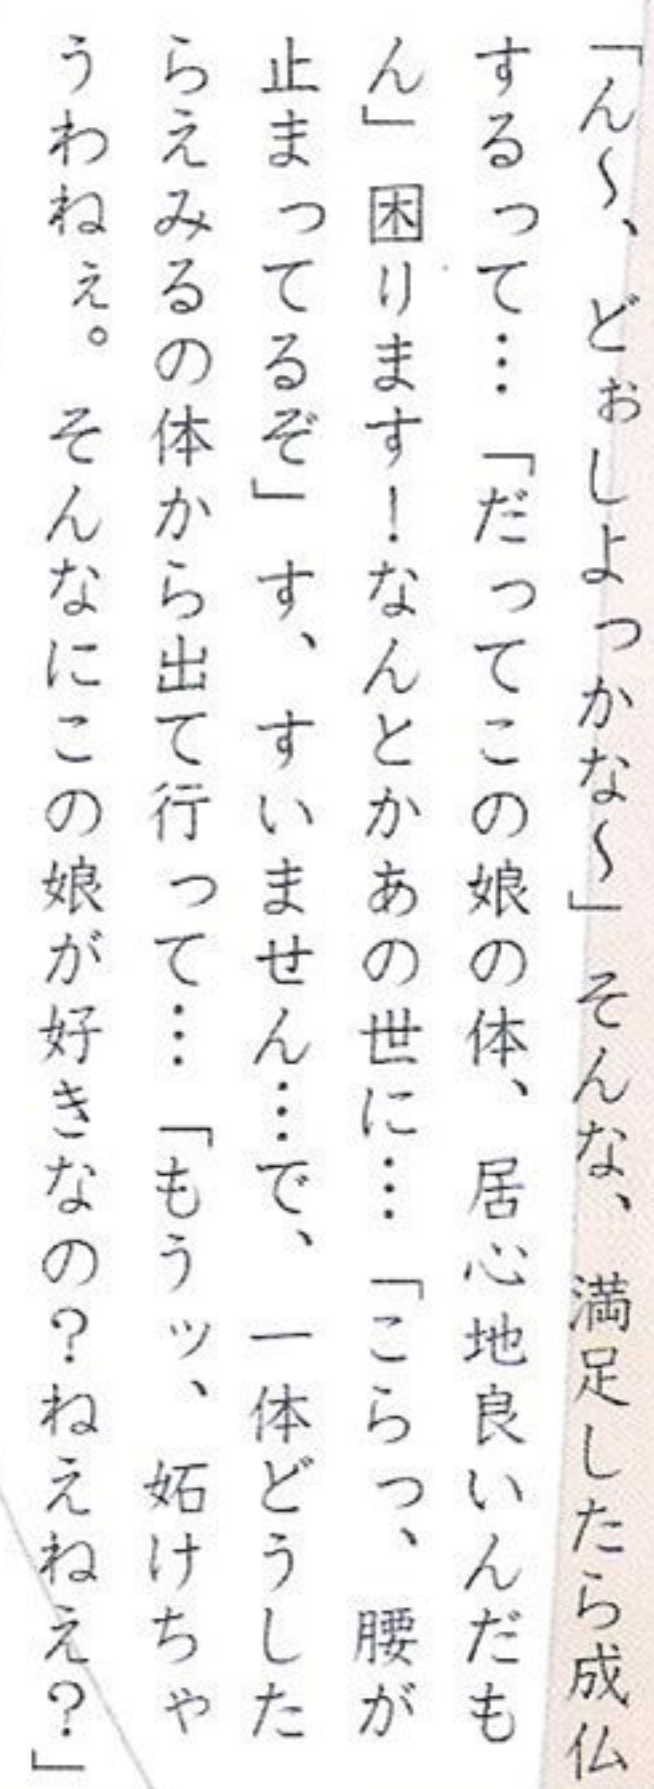 「ん～、どぉしよっかな～」そんな、満足したら成仏
するって…「だってこの娘の体、居心地良いんだも
ん」困ります！なんとかあの世に…「こらっ、腰が
止まってるぞ」す、すいません…で、一体どうした
らえみるの体から出て行って…「もうッ、妬けちゃ
うわねぇ。そんなにこの娘が好きなの？ねえねえ？」